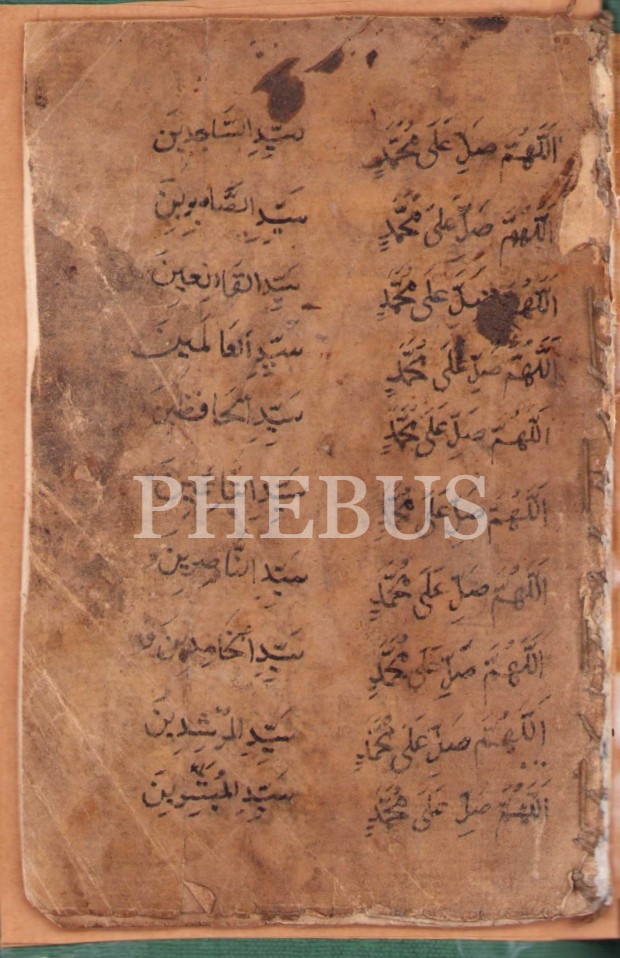 اَللّٰهُمَّ صَلِّ عَلَى مُحَمَّدٍ سَيِّدِ السَّاجِدِينَ
اَللّٰهُمَّ صَلِّ عَلَى مُحَمَّدٍ سَيِّدِ الصَّابِرِينَ
اَللّٰهُمَّ صَلِّ عَلَى مُحَمَّدٍ سَيِّدِ
اَللّٰهُمَّ صَلِّ عَلَى مُحَمَّدٍ سَيِّدِ الْعَالَمِينَ
اَللّٰهُمَّ صَلِّ عَلَى مُحَمَّدٍ سَيِّدِ الْحَافِظِينَ
PHEBUS
اَللّٰهُمَّ صَلِّ عَلَى سَيِّدِ
اَللّٰهُمَّ صَلِّ عَلَى مُحَمَّدٍ سَيِّدِ النَّاصِرِينَ
اَللّٰهُمَّ صَلِّ عَلَى مُحَمَّدٍ سَيِّدِ الْحَامِدِينَ
اَللّٰهُمَّ صَلِّ عَلَى مُحَمَّدٍ سَيِّدِ الْمُرْشِدِينَ
اَللّٰهُمَّ صَلِّ عَلَى مُحَمَّدٍ سَيِّدِ الْمُبَشِّرِينَ